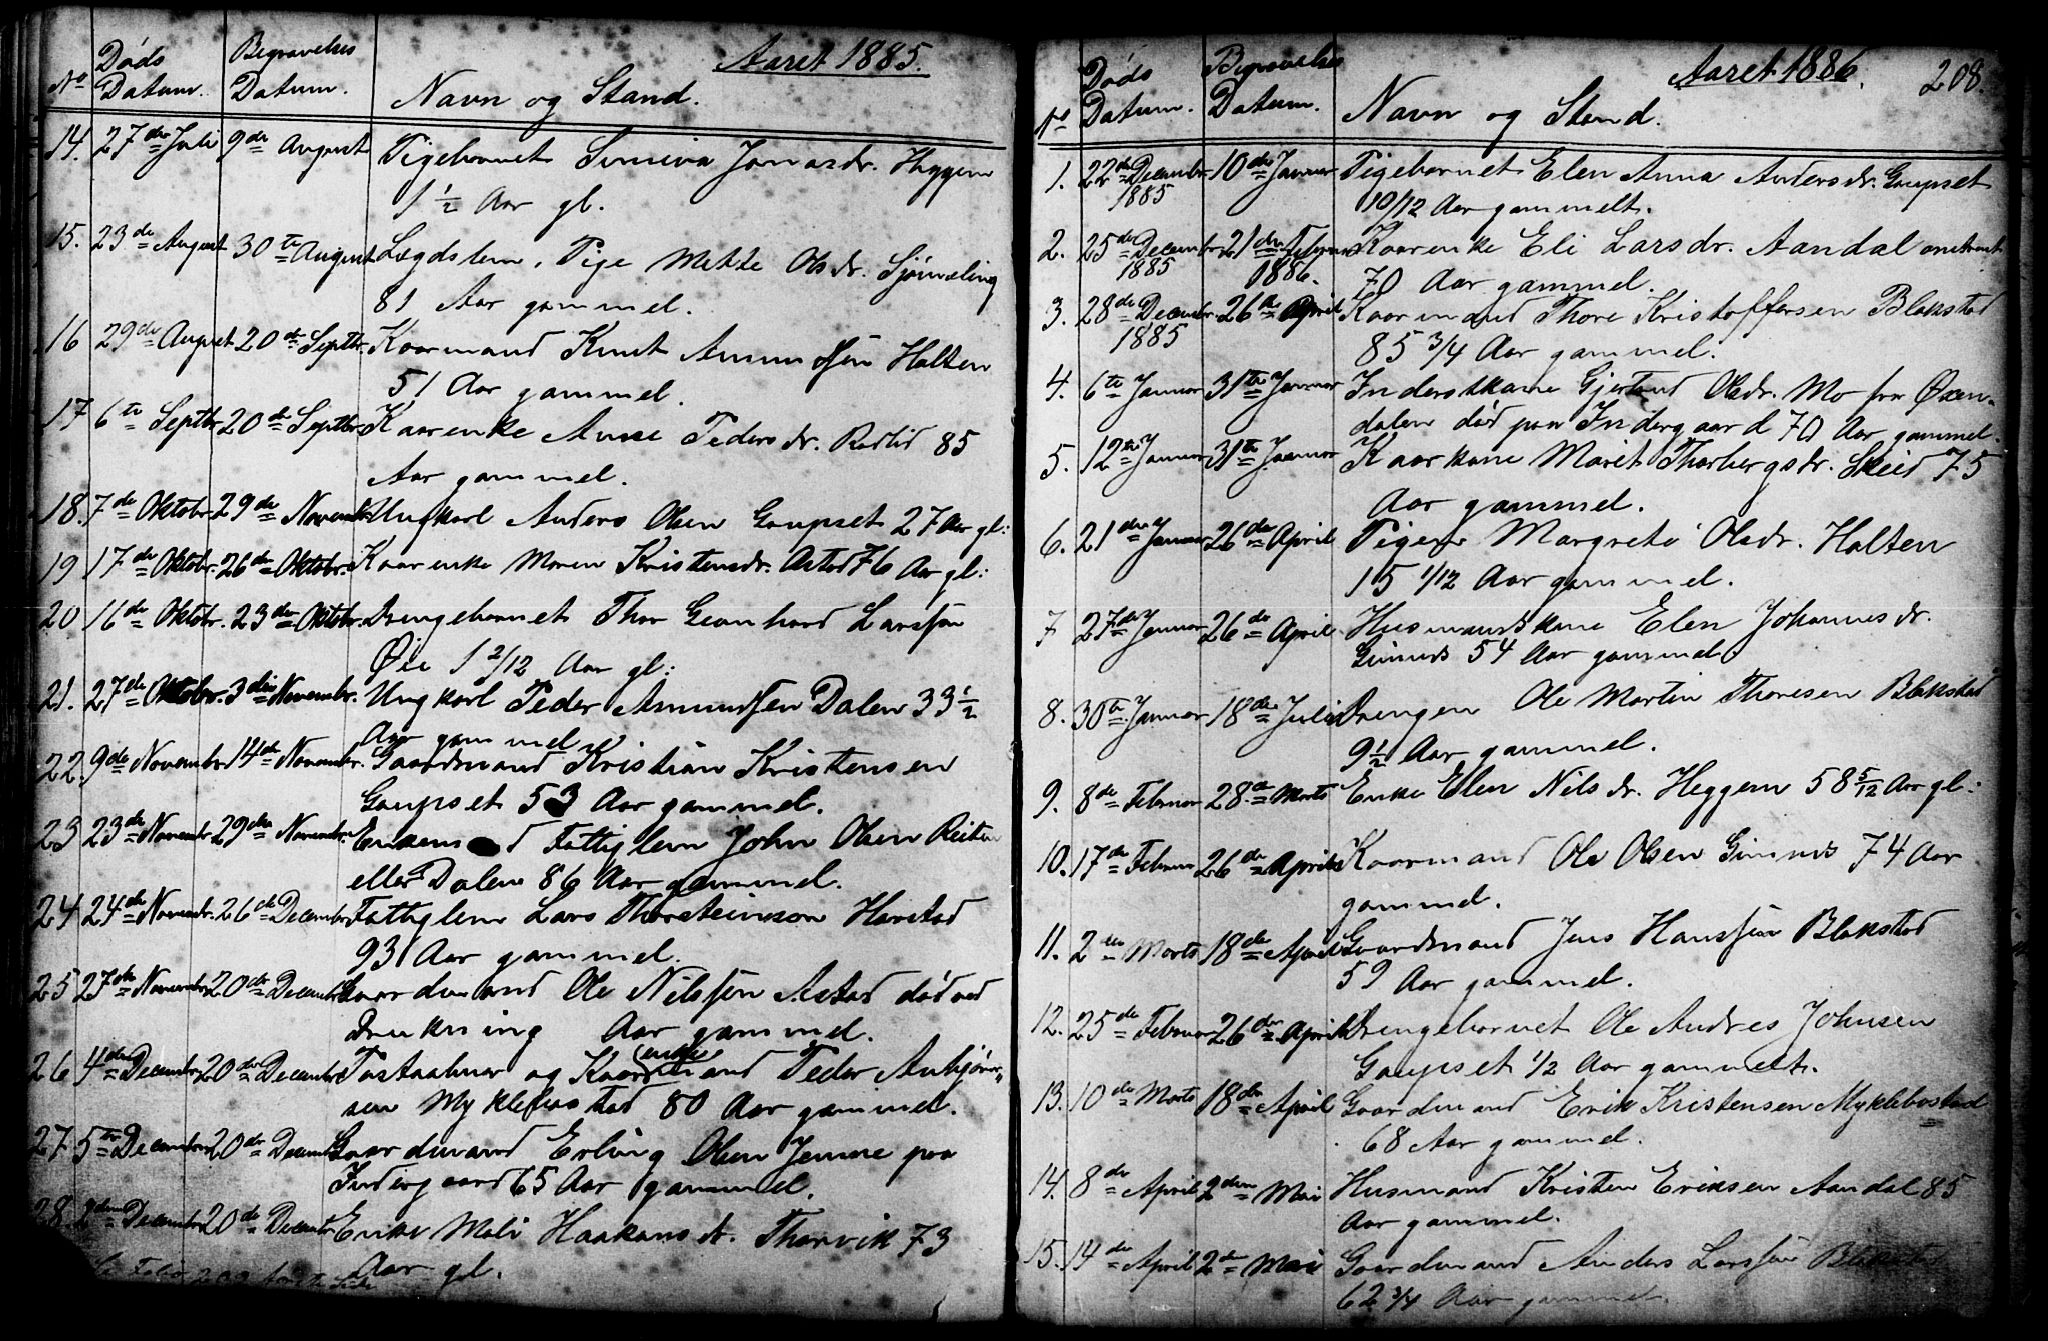 Aaret 1885.
No Døds Datum. Begravelses Datum. Navn og Stand.
14. 27de Juli 9de August Pigebarnet Siniva Jonasdr. Heggem
1 1/2 Aar gl.
15. 23de August 30te August Lægdslem, Pige Mette Olsdr. Sjømæling
81 Aar gammel.
16 29de August 20de Septbr. Kaarmand Knut Amundsen Halten
51 Aar gammel.
17 6te Septbr. 20de Septbr. Kaarenke Anne Pedersdr. Rødlid 85
Aar gammel.
18. 7de Oktobr. 29de Novembr. Ungkarl Anders Olsen Gaupset 27 Aar gl:
19 17de Oktobr. 26de Oktobr. Kaarenke Maren Kristensdr. Astad 76 Aar gl:
20 16de Oktobr. 23de Oktobr. Drengebarnet Thor Leonhard Larssen
Øie 1 2/12 Aar gl:
21. 27de Oktobr. 3die Novembr. Ungkarl Peder Amundsen Dalen 33 1/2
Aar gammel
22. 9de Novembr. 14de Novembr. Gaardmand Kristian Kristensen
Gaupset 53 Aar gammel.
23 23de Novembr. 29de Novembr. Enkemand Fattiglem John Olsen Reiten
eller Dalen 86 Aar gammel.
24 24de Novembr. 26de Decembr. Fattiglem Lars Thorsteinson Harstad
93 Aar gammel.
25 27de Novembr. 20de Decembr. Gaardmand Ole Nilssen Astad død ved
Drukning Aar gammel.
26 4de Decembr. 20de Decembr. Postaabner og Kaarenkemand Peder Anbjørn-
sen Myklebostad 80 Aar gammel.
27 5te Decembr. 20de Decembr. Gaardmand Erling Olsen Jemne paa
Indergaard 65 Aar gammel.
28 2den Decembr. 20de Decembr. Enke Mali Haakansdr. Thorvik 73
Aar gl.
Aaret 1886. 208.
No Døds Datum. Begravelses Datum. Navn og Stand.
1. 22de Decembr. 1885 10de Januar Pigebarnet Elen Anna Andersdr. Gaupset
10/12 Aar gammelt.
2. 25de Decembr. 1885 21de Februar 1886. Kaarenke Eli Larsdr. Aandal
70 Aar gammel.
3. 28de Decembr. 1885 26de April Kaarmand Thore Kristoffersen Blakstad
85 3/4 Aar gammel.
4. 6te Januar 31te Januar Inderstkone Gjertrud Olsdr. Mo fra Øxen-
dalen død paa Indergaard 70 Aar gammel.
5. 12te Januar 31te Januar Kaarkone Maret Thorbergsdr. Skeid 75
Aar gammel.
6. 21de Januar 26de April Pigen Margrete Olsdr. Halten
15 1/12 Aar gammel.
7 27de Januar 26de April Husmandskone Elen Johannesdr.
Gimnes 54 Aar gammel
8. 30te Januar 18de Juli Drengen Ole Martin Thoresen Blakstad
9 1/2 Aar gammel.
9. 8de Februar 28de Marts Enke Elen Nilsdr. Heggem 58 5/12 Aar gl:
10. 17de Februar 26de April Kaarmand Ole Olsen Gimnes 74 Aar
gammel.
11. 2den Marts 18de April Gaardmand Jens Hanssen Blakstad
59 Aar gammel.
12. 25de Februar 26de April Drengebarnet Ole Andres Johnsen
Gaupset 1/2 Aar gammelt.
13. 10de Marts 18de April Gaardmand Erik Kristensen Myklebostad
68 Aar gammel.
14. 8de April 2den Mai Husmand Kristen Eriksen Aandal 85
Aar gammel.
15. 14de April 2den Mai Gaardmand Anders Larssen Blakstad
62 3/4 Aar gammel.